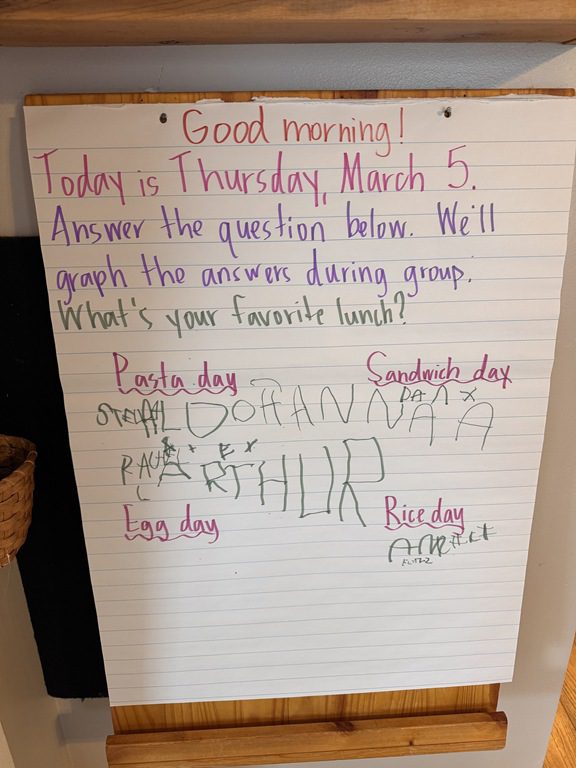 Good morning!
Today is Thursday, March 5.
Answer the question below. We'll
graph the answers during group.
What's your favorite lunch?
Pasta day Sandwich day
ARTHUR
Egg day Rice day